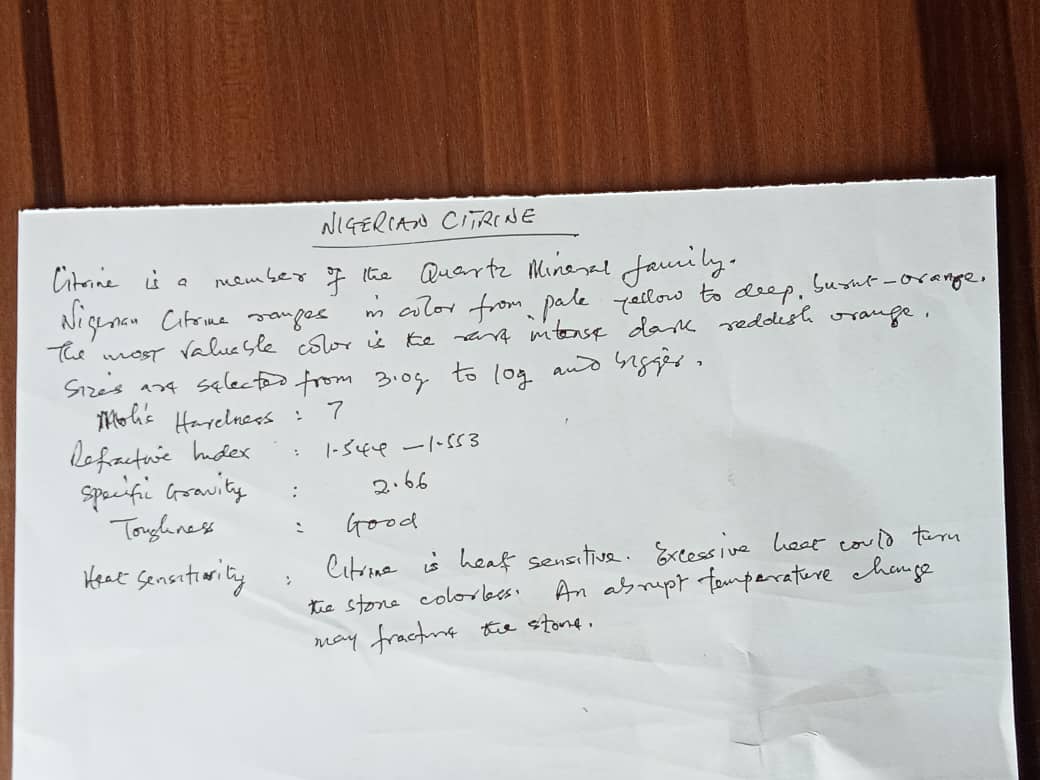 NIGERIAN CITRINE
Citrine is a member of the Quartz Mineral family.
Nigerian Citrine ranges in color from pale yellow to deep, burnt-orange.
The most valuable color is the rare intense dark reddish orange.
Sizes are selected from 3.0g to 10g and bigger.
Moh's Hardness : 7
Refractive Index : 1.544 - 1.553
Specific Gravity : 2.66
Toughness : Good
Heat Sensitivity : Citrine is heat sensitive. Excessive heat could turn
the stone colorless. An abrupt temperature change
may fracture the stone.